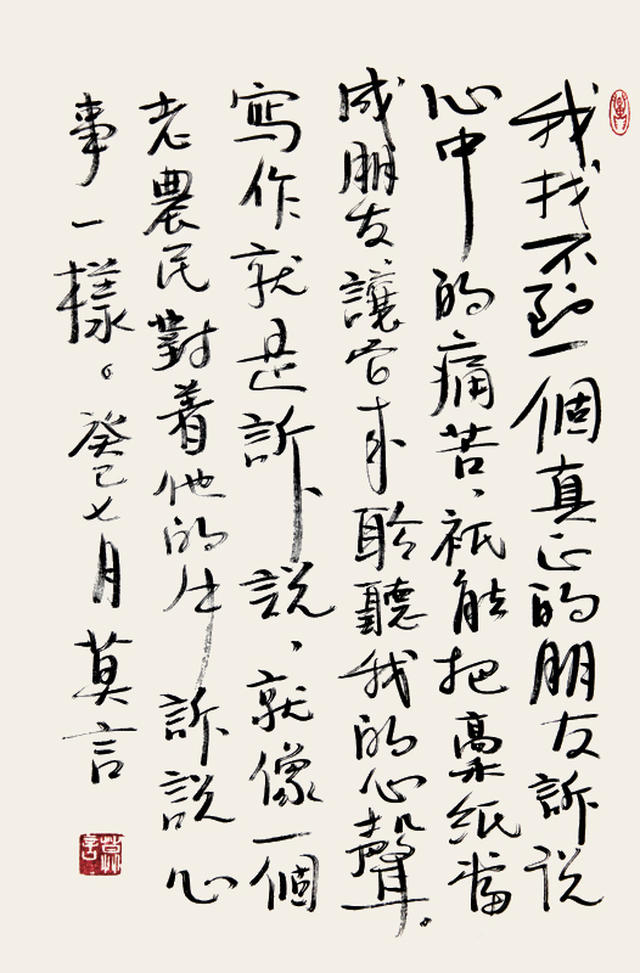 我找不到一個真正的朋友訴说
心中的痛苦、祇能把稾紙當
成朋友、讓它来聆聽我的心聲。
寫作就是訴説、就像一個
老農民對着他的牛訴説心
事一樣。癸巳七月莫言
莫言